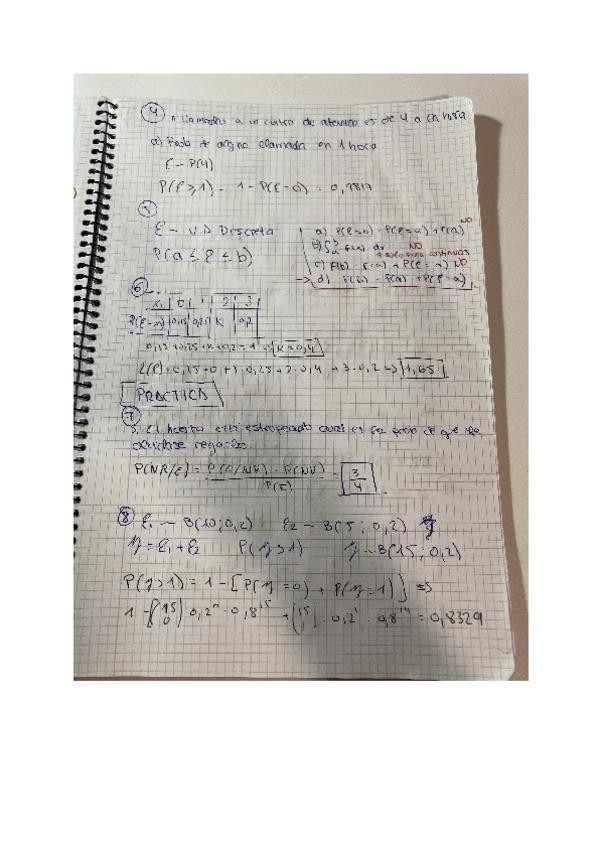 ④ nº llamadas a un centro de atención es de 4 a la hora
a) Prob de alguna llamada en 1 hora.
ξ ~ P(4)
P(ξ ≥ 1) = 1 - P(ξ=0) = 0,9817
⑤
ξ ~ V.A Discreta
P(a ≤ ξ ≤ b)
a) P(ξ=b) - P(ξ=a) + F(a) NO
b) ∫ f(x) dx NO
solo para continuas
c) F(b) - F(a) + P(ξ = a) NO
→ d) F(b) - F(a) + P(ξ=a)
⑥
xi | 0 | 1 | 2 | 3
P(ξ=xi) | 0,15 | 0,25 | K | 0,2
0,15 + 0,25 + K + 0,2 = 1 => K = 0,4
E(ξ) = 0,15 · 0 + 1 · 0,25 + 2 · 0,4 + 3 · 0,2 => 1,65
PRACTICA
⑦
está estropeado cual es la prob de que se
olvidase regarlo.
P(NR/E) = P(E/NR) · P(NR) / P(E) = 3/4
⑧ ξ1 ~ B(10; 0,2) ξ2 ~ B(5; 0,2)
η = ξ1 + ξ2 P(η > 1) η ~ B(15; 0,2)
P(η > 1) = 1 - [P(η = 0) + P(η = 1)] =>
1 - (15 0) 0,2⁰ · 0,8¹⁵ + (15 1) · 0,2¹ · 0,8¹⁴ = 0,8329